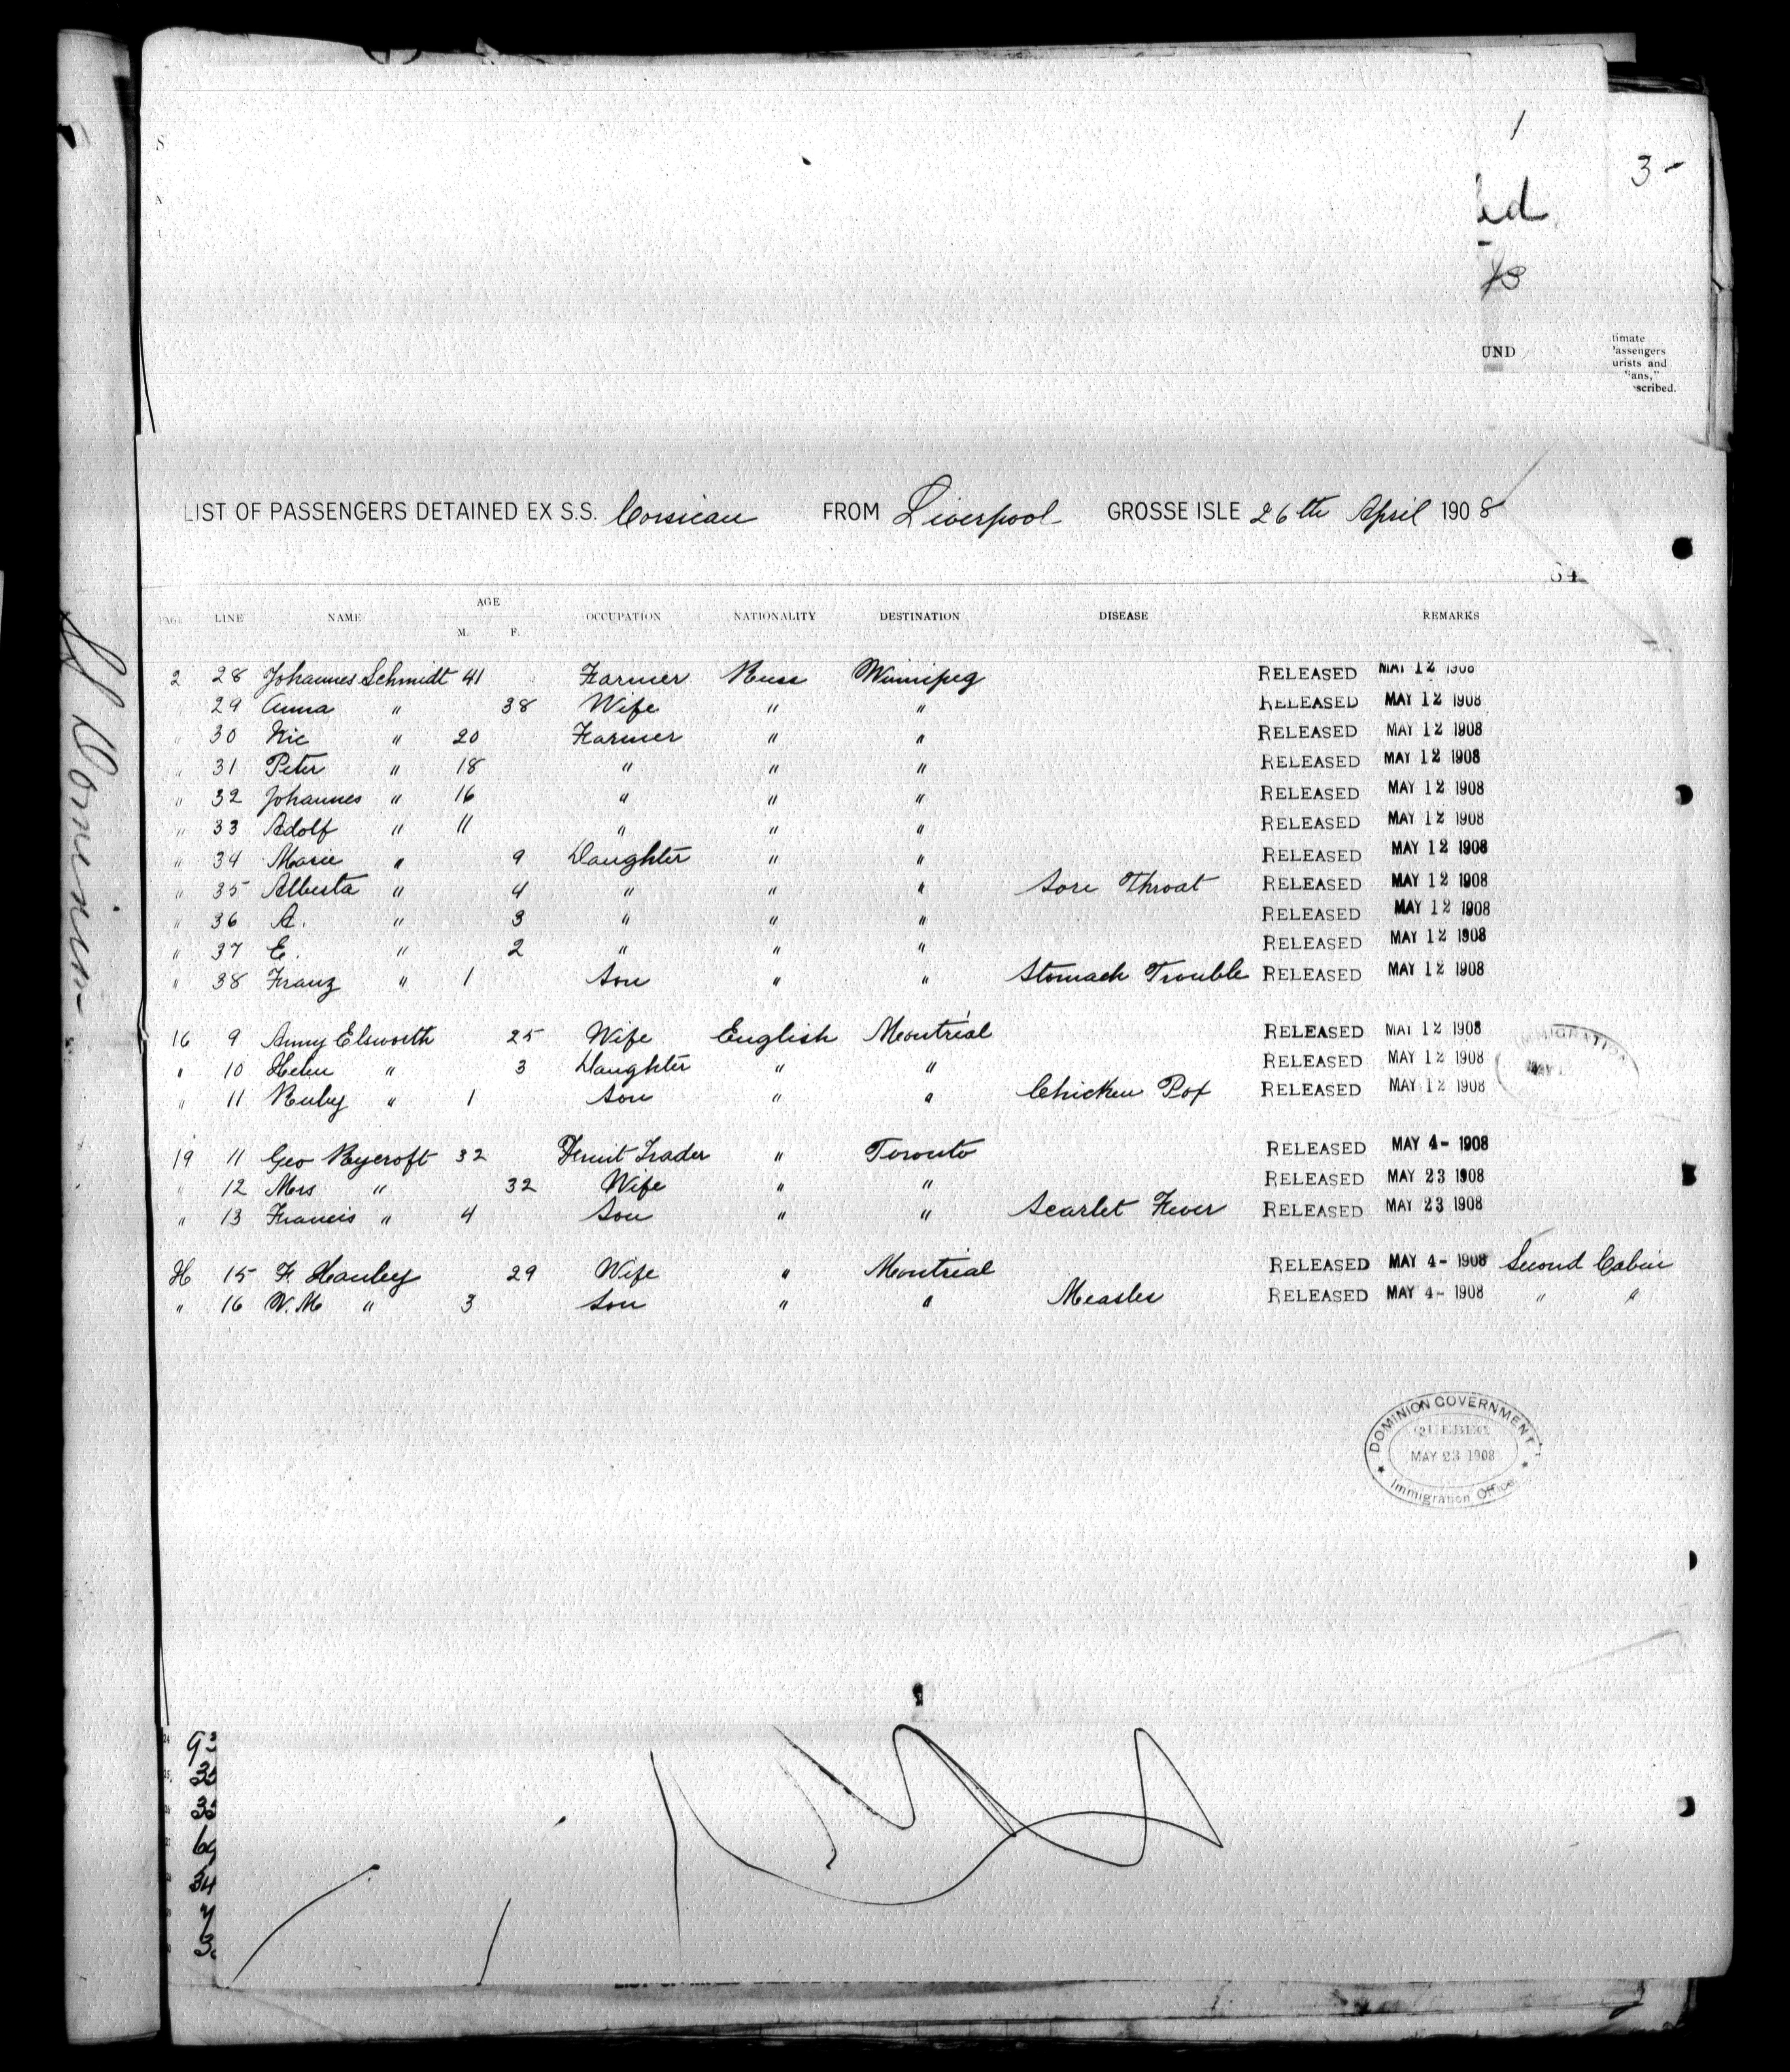 1
3 -
ed
UND
timate
'assengers
urists and
"ans,"
scribed.
LIST OF PASSENGERS DETAINED EX S.S. Corsican FROM Liverpool GROSSE ISLE 26th April 1908
64
PAGE LINE NAME AGE M. F. OCCUPATION NATIONALITY DESTINATION DISEASE REMARKS
2 28 Johannes Schmidt 41 Farmer Russ Winnipeg RELEASED MAY 12 1908
29 Anna " 38 Wife " " RELEASED MAY 12 1908
" 30 Nic " 20 Farmer " " RELEASED MAY 12 1908
" 31 Peter " 18 " " " RELEASED MAY 12 1908
" 32 Johannes " 16 " " " RELEASED MAY 12 1908
" 33 Adolf " 11 " " " RELEASED MAY 12 1908
" 34 Marie " 9 Daughter " " RELEASED MAY 12 1908
" 35 Alberta " 4 " " " Sore Throat RELEASED MAY 12 1908
" 36 A. " 3 " " " RELEASED MAY 12 1908
" 37 E. " 2 " " " RELEASED MAY 12 1908
" 38 Franz " 1 Son " " Stomach Trouble RELEASED MAY 12 1908
16 9 Anny Elsworth 25 Wife English Montreal RELEASED MAY 12 1908
" 10 Helen " 3 Daughter " " RELEASED MAY 12 1908
" 11 Ruby " 1 Son " " Chicken Pox RELEASED MAY 12 1908
IMMIGRATION
MAY
19 11 Geo Rycroft 32 Fruit Trader " Toronto RELEASED MAY 4- 1908
" 12 Mrs " 32 Wife " " RELEASED MAY 23 1908
" 13 Francis " 4 Son " " Scarlet Fever RELEASED MAY 23 1908
H 15 F. Hanley 29 Wife " Montreal RELEASED MAY 4- 1908 Second Cabin
" 16 W.M " 3 Son " " Measles RELEASED MAY 4- 1908 " "
DOMINION GOVERNMENT
QUEBEC
MAY 23 1908
Immigration Office
34